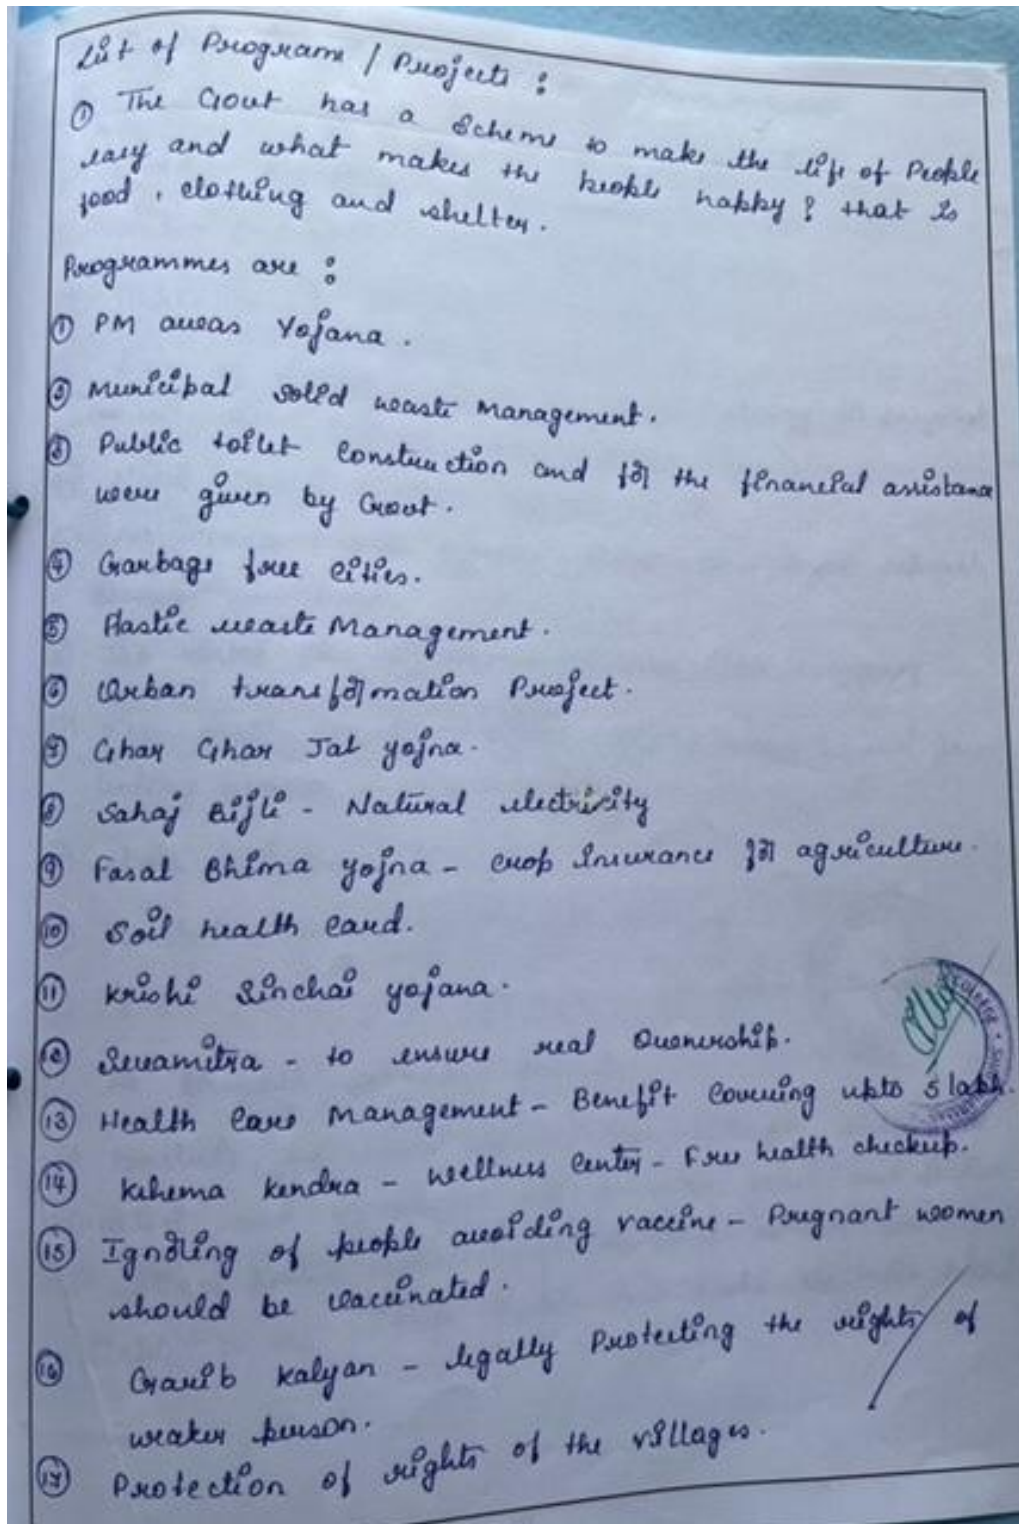 List of Program / Projects :
① The Govt has a Scheme to make the life of People
easy and what makes the people happy ? that is
food , clothing and shelter.
Programmes are :
① PM awas Yojana .
② Municipal solid waste Management .
③ Public toilet Construction and for the financial assistance
were given by Govt .
④ Garbage free cities.
⑤ Plastic waste Management .
⑥ Urban transformation Project .
⑦ Ghar Ghar Jal yojna .
⑧ Sahaj Bijli - Natural electricity
⑨ Fasal Bhima yojna - crop Insurance for agriculture .
⑩ Soil health card.
⑪ Krishi Sinchai yojana .
⑫ Swamitra - to ensure real Ownership.
⑬ Health Care Management - Benefit Covering upto 5 lakh.
⑭ Kshema Kendra - Wellness Center - Free health checkup.
⑮ Ignoring of people avoiding vaccine - Pregnant women
should be vaccinated .
⑯ Garib Kalyan - legally Protecting the rights of
weaker person .
⑰ Protection of rights of the villages .